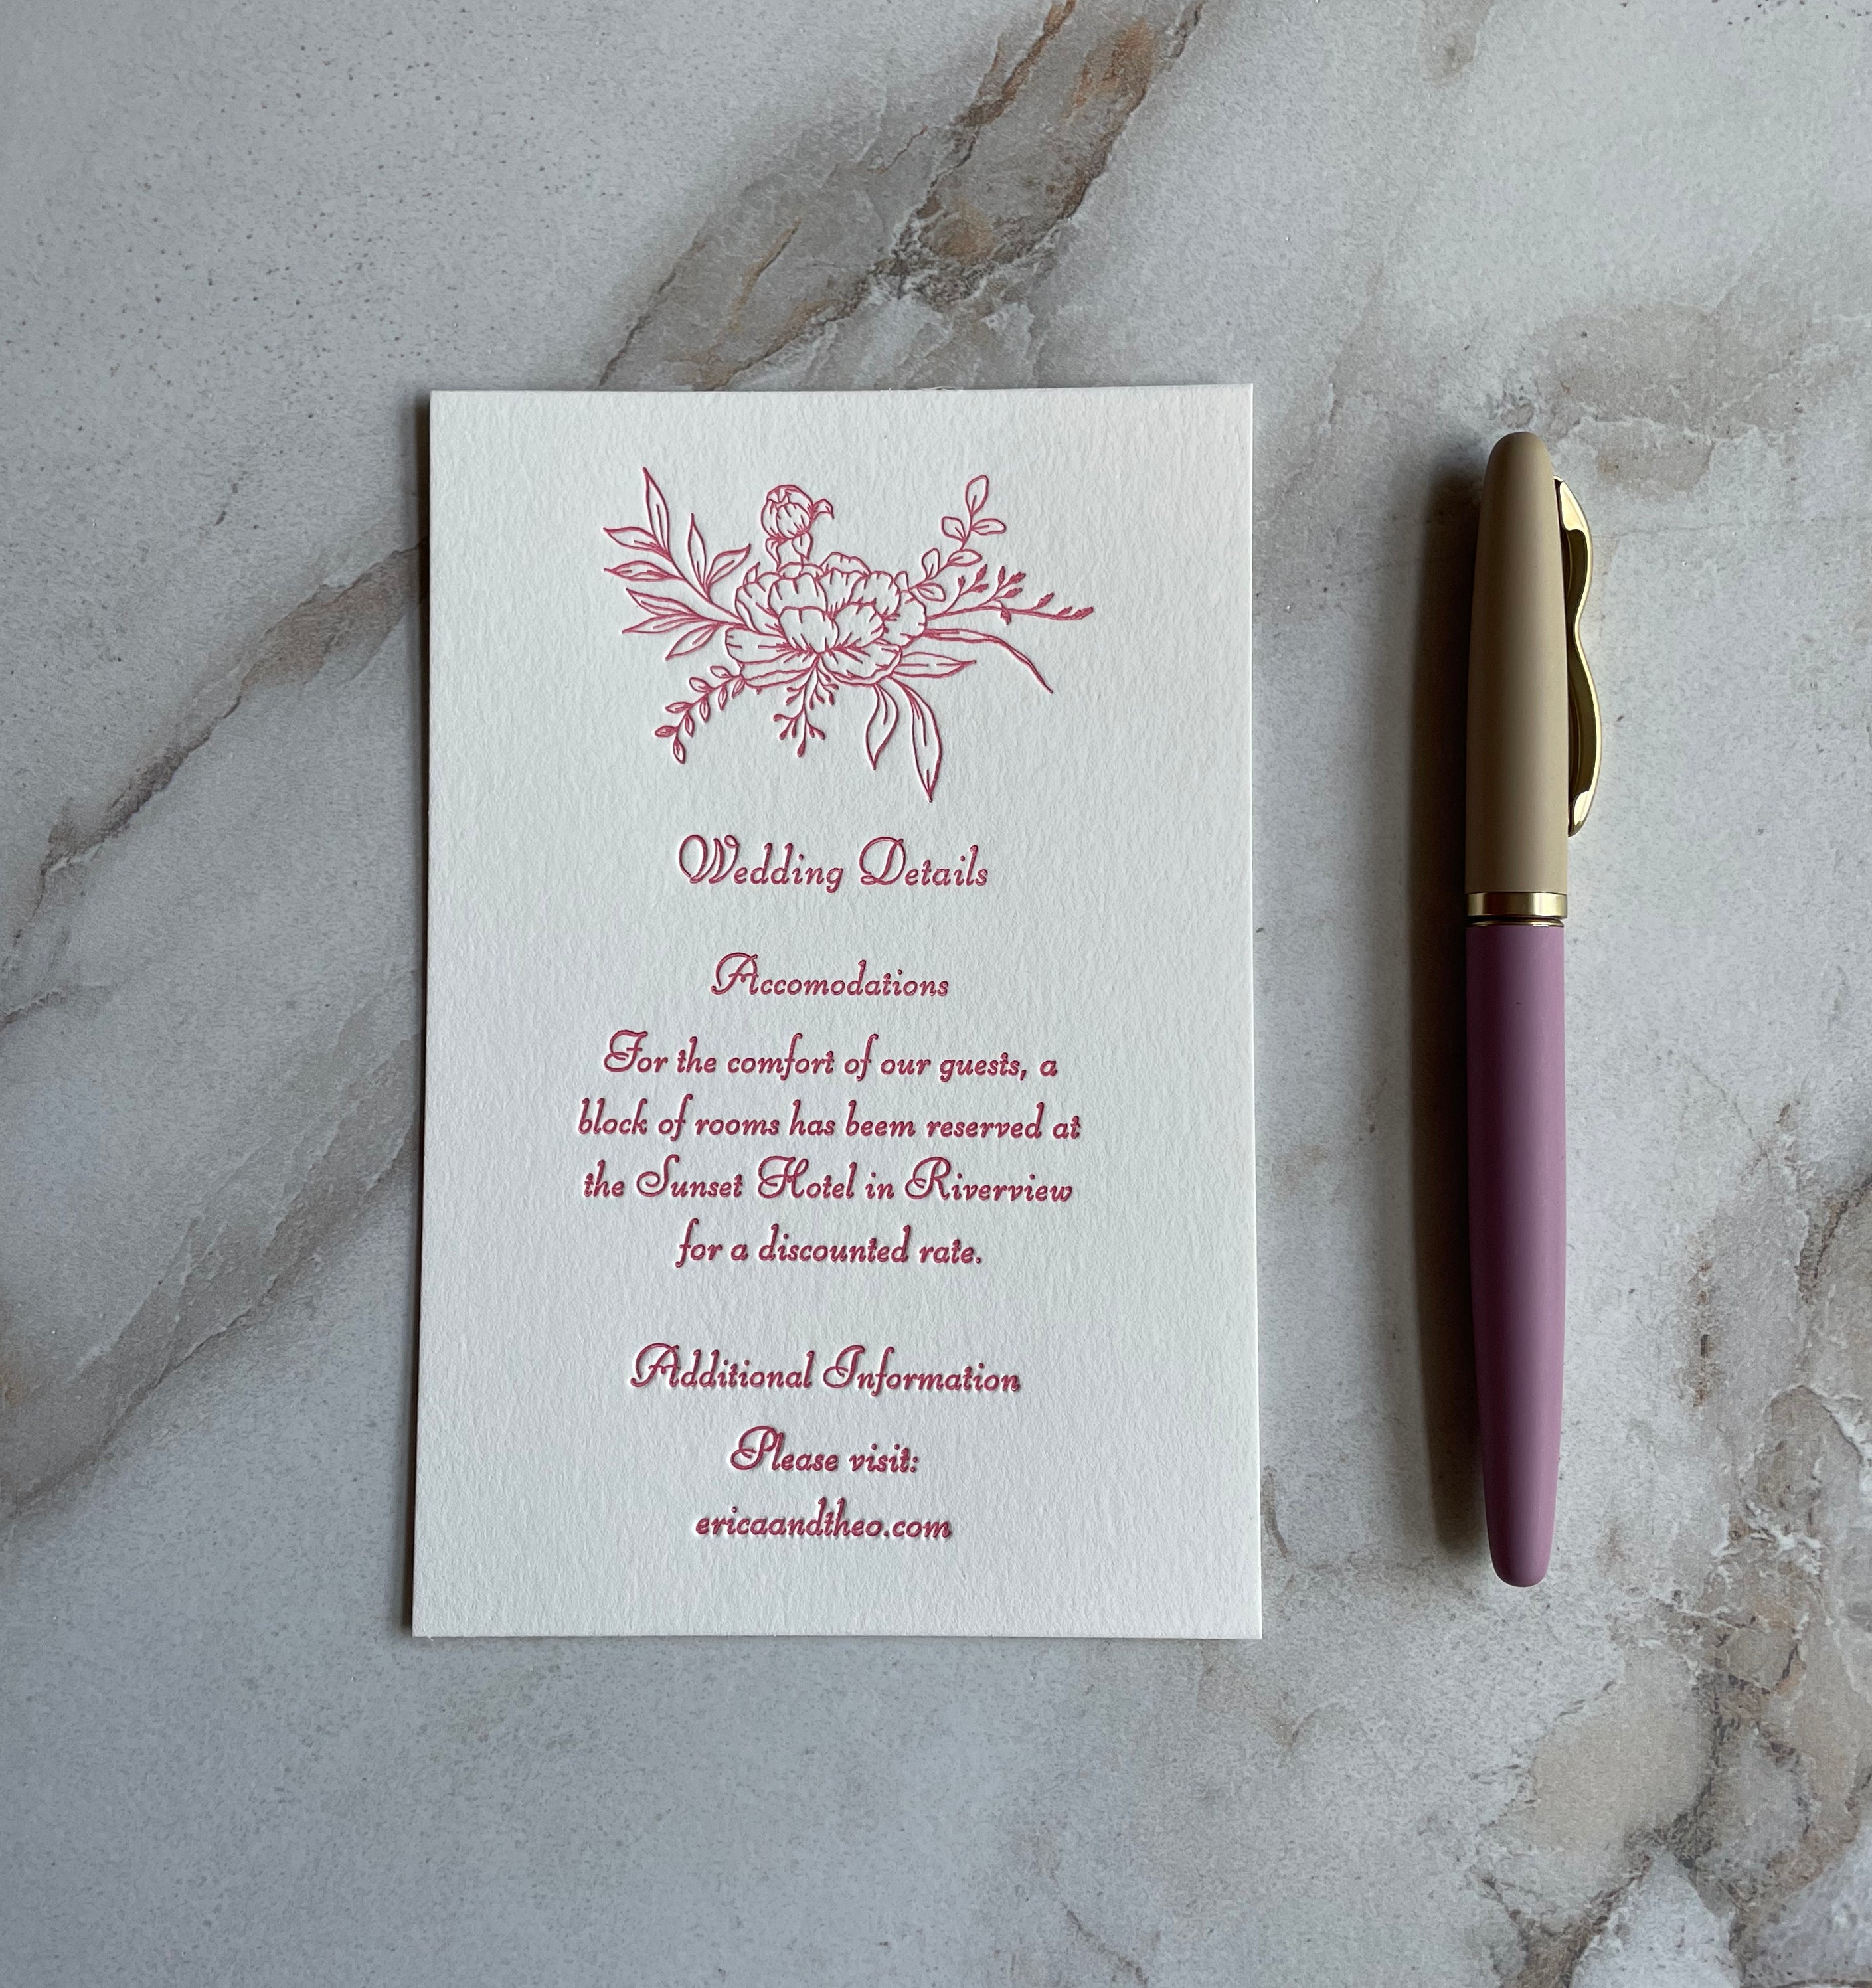 Wedding Details
Accomodations
For the comfort of our guests, a
block of rooms has beem reserved at
the Sunset Hotel in Riverview
for a discounted rate.
Additional Information
Please visit:
ericaandtheo.com